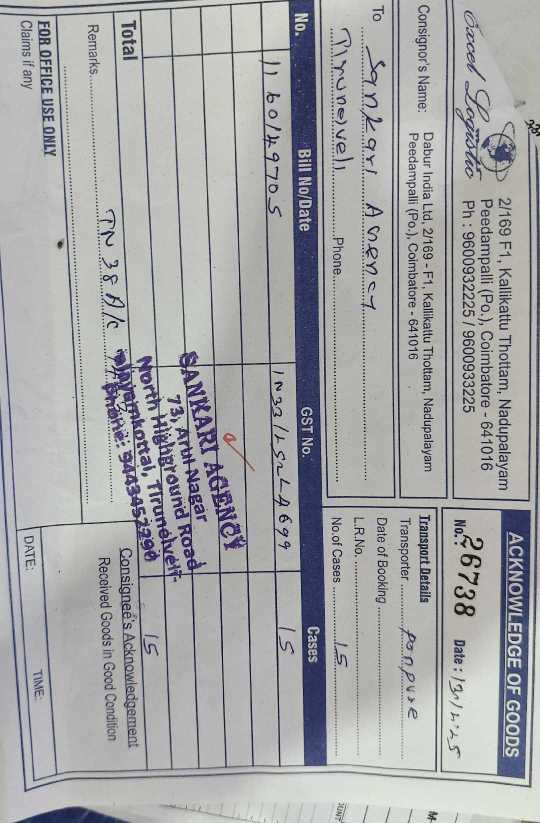 ACKNOWLEDGE OF GOODS
Excel Logistic
2/169 F1, Kallikattu Thottam, Nadupalayam
Peedampalli (Po.), Coimbatore - 641016
Ph : 9600932225 / 9600933225
No.: 26738
Date :
Consignor's Name:
Dabur India Ltd, 2/169 - F1, Kallikattu Thottam, Nadupalayam
Peedampalli (Po.), Coimbatore - 641016
To Sankari Agency
Tirunelveli
Phone
Transport Details
Transporter
Date of Booking
L.R.No.
No.of Cases 15
No. Bill No/Date GST No. Cases
1160149705 15
SANKARI AGENCY
73, Arul Nagar
North Highground Road
Tirunelveli-
Phone:
Total 15
Remarks
TN 38 A/c
Consignee's Acknowledgement
Received Goods in Good Condition
FOR OFFICE USE ONLY
Claims if any
DATE: TIME: